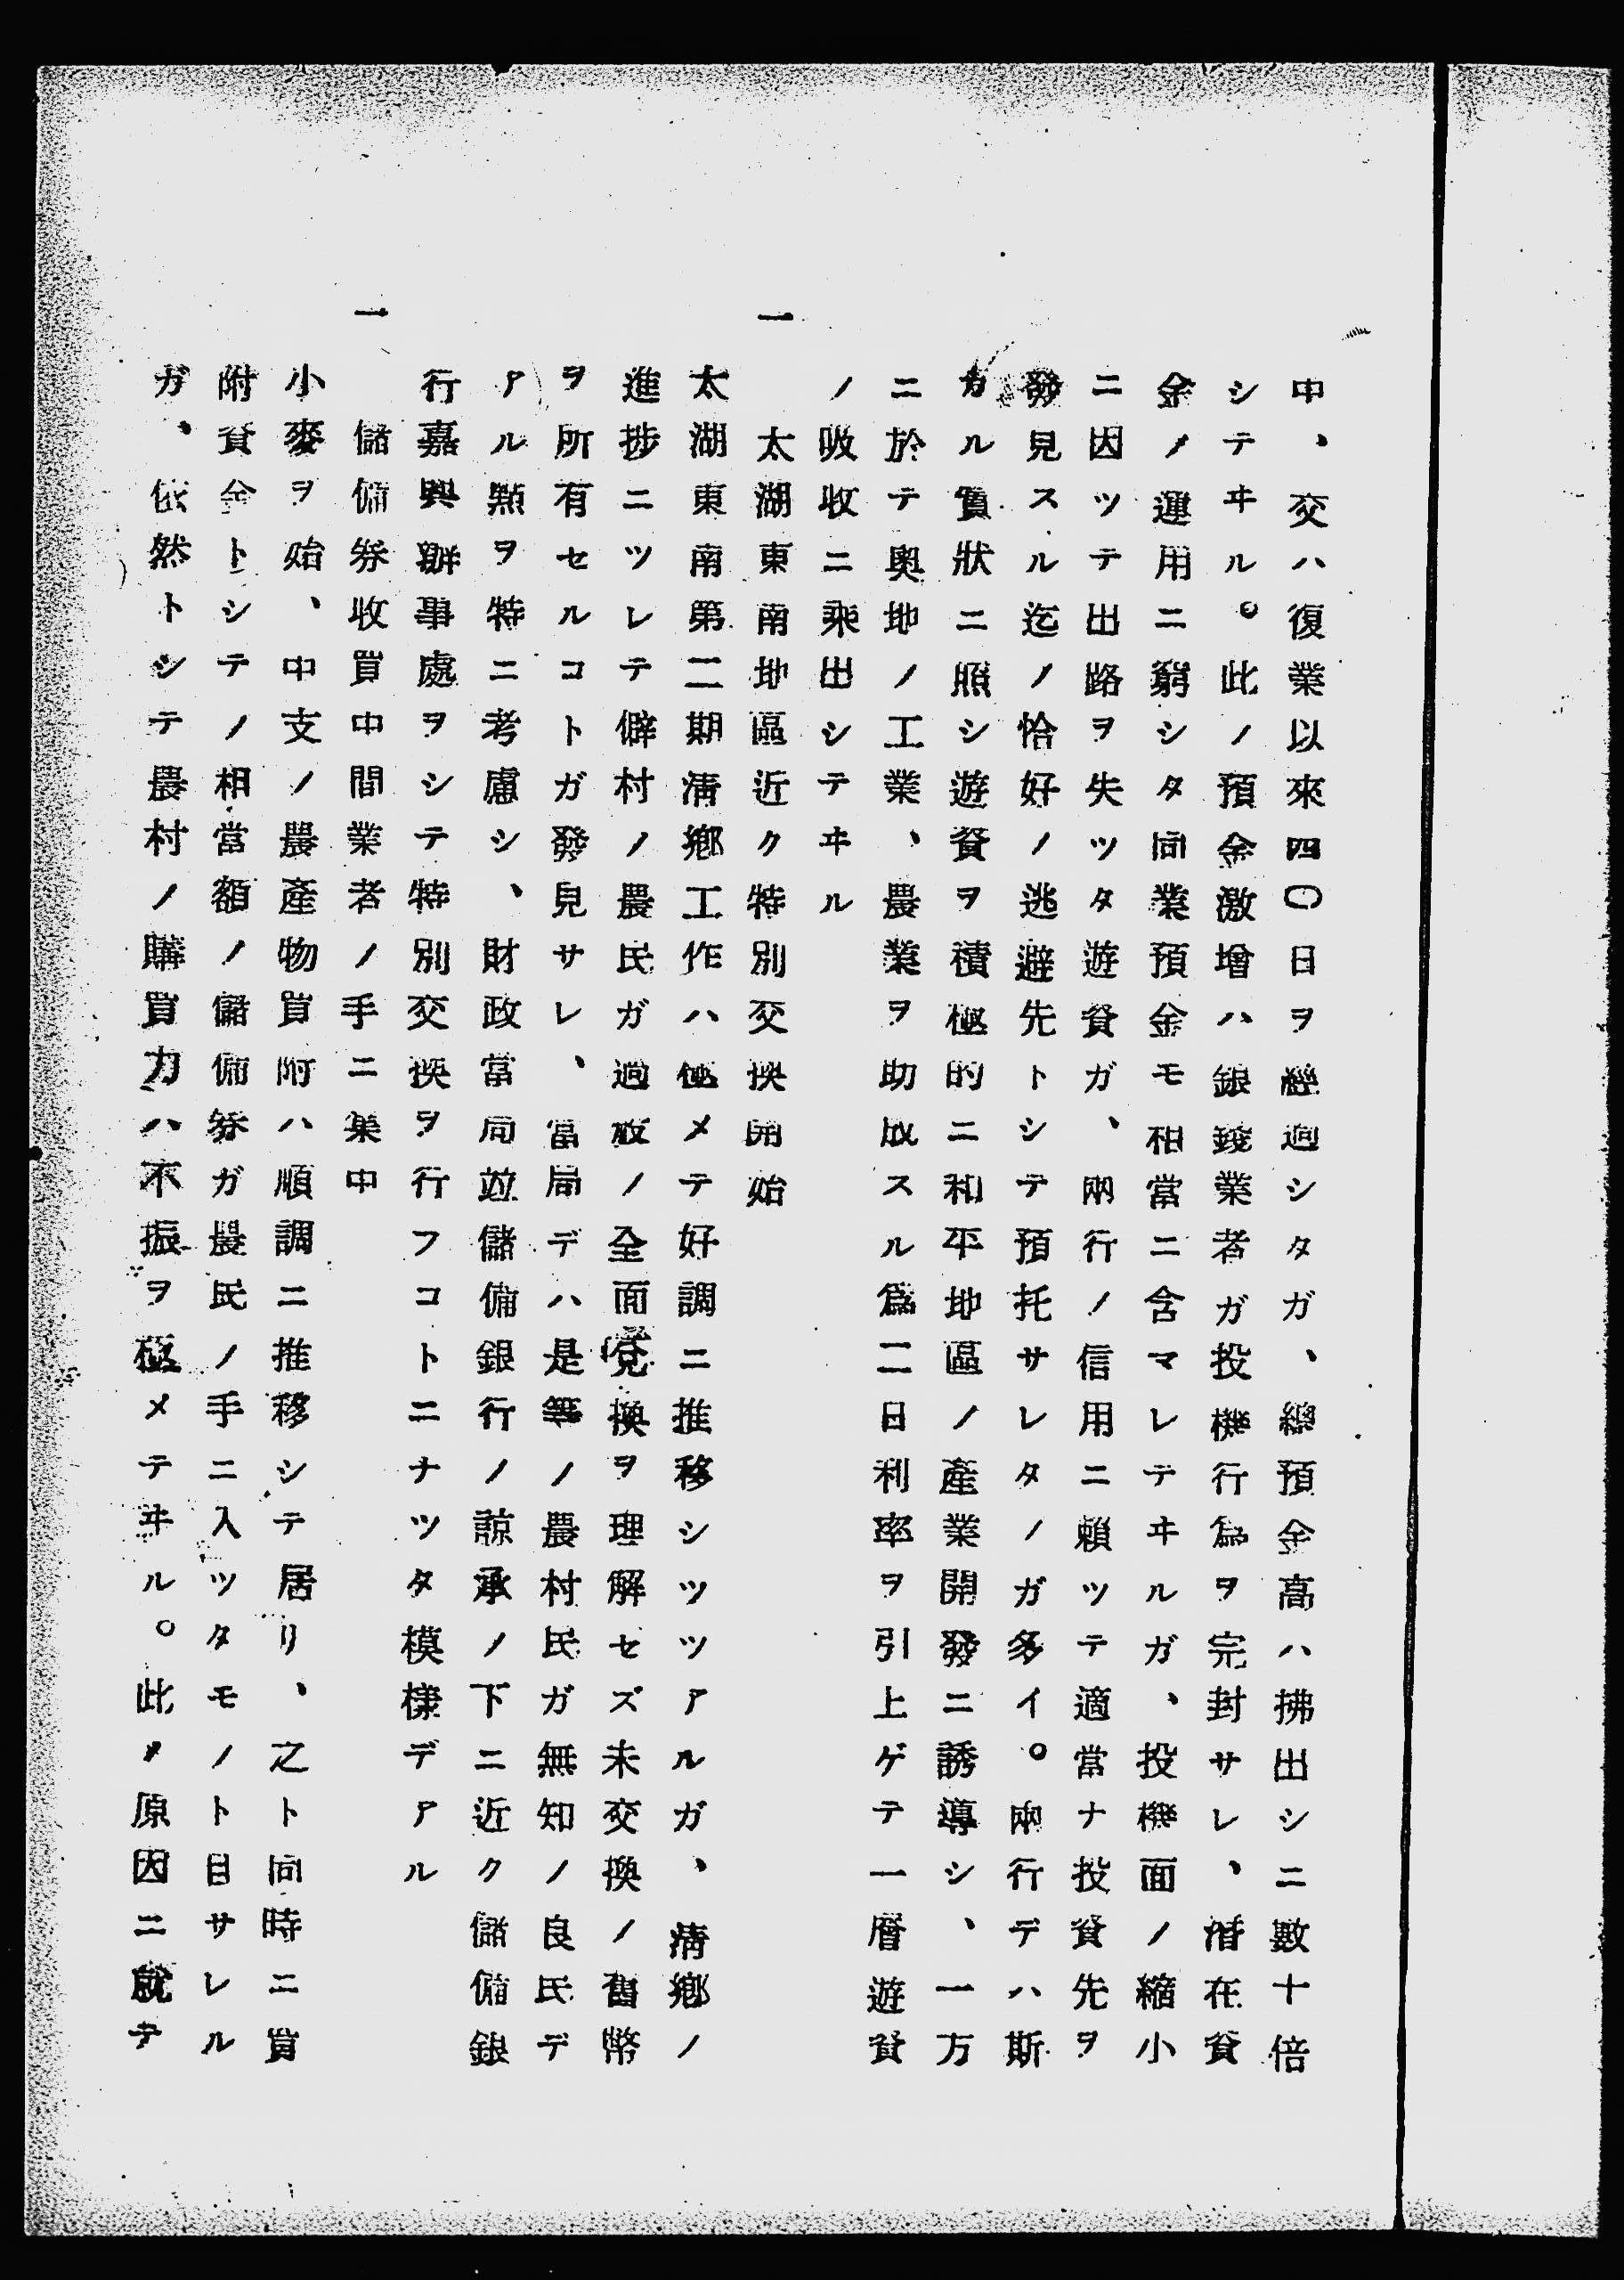 中、交ハ復業以來四〇日ヲ經過シタガ、總預金高ハ拂出シニ數十倍
シテヰル。此ノ預金激增ハ銀錢業者ガ投機行爲ヲ完封サレ、潛在資
金ノ運用ニ窮シタ同業預金モ相當ニ含マレテヰルガ、投機面ノ縮小
ニ因ツテ出路ヲ失ツタ遊資ガ、兩行ノ信用ニ賴ツテ適當ナ投資先ヲ
發見スル迄ノ恰好ノ逃避先トシテ預托サレタノガ多イ。兩行デハ斯
カル實狀ニ照シ遊資ヲ積極的ニ和平地區ノ產業開發ニ誘導シ、一方
ニ於テ奧地ノ工業、農業ヲ助成スル爲二日利率ヲ引上ゲテ一層遊資
ノ吸收ニ乘出シテヰル
一 太湖東南地區近ク特別交換開始
太湖東南第二期淸鄕工作ハ極メテ好調ニ推移シツツアルガ、淸鄕ノ
進捗ニツレテ僻村ノ農民ガ過般ノ全面兌換ヲ理解セズ未交換ノ舊幣
ヲ所有セルコトガ發見サレ、當局デハ是等ノ農村民ガ無知ノ良民デ
アル點ヲ特ニ考慮シ、財政當局竝儲備銀行ノ諒承ノ下ニ近ク儲備銀
行嘉興辦事處ヲシテ特別交換ヲ行フコトニナツタ模樣デアル
一 儲備券收買中間業者ノ手ニ集中
小麥ヲ始、中支ノ農產物買附ハ順調ニ推移シテ居リ、之ト同時ニ買
附資金トシテノ相當額ノ儲備券ガ農民ノ手ニ入ツタモノト目サレル
ガ、依然トシテ農村ノ購買力ハ不振ヲ極メテヰル。此ノ原因ニ就テ